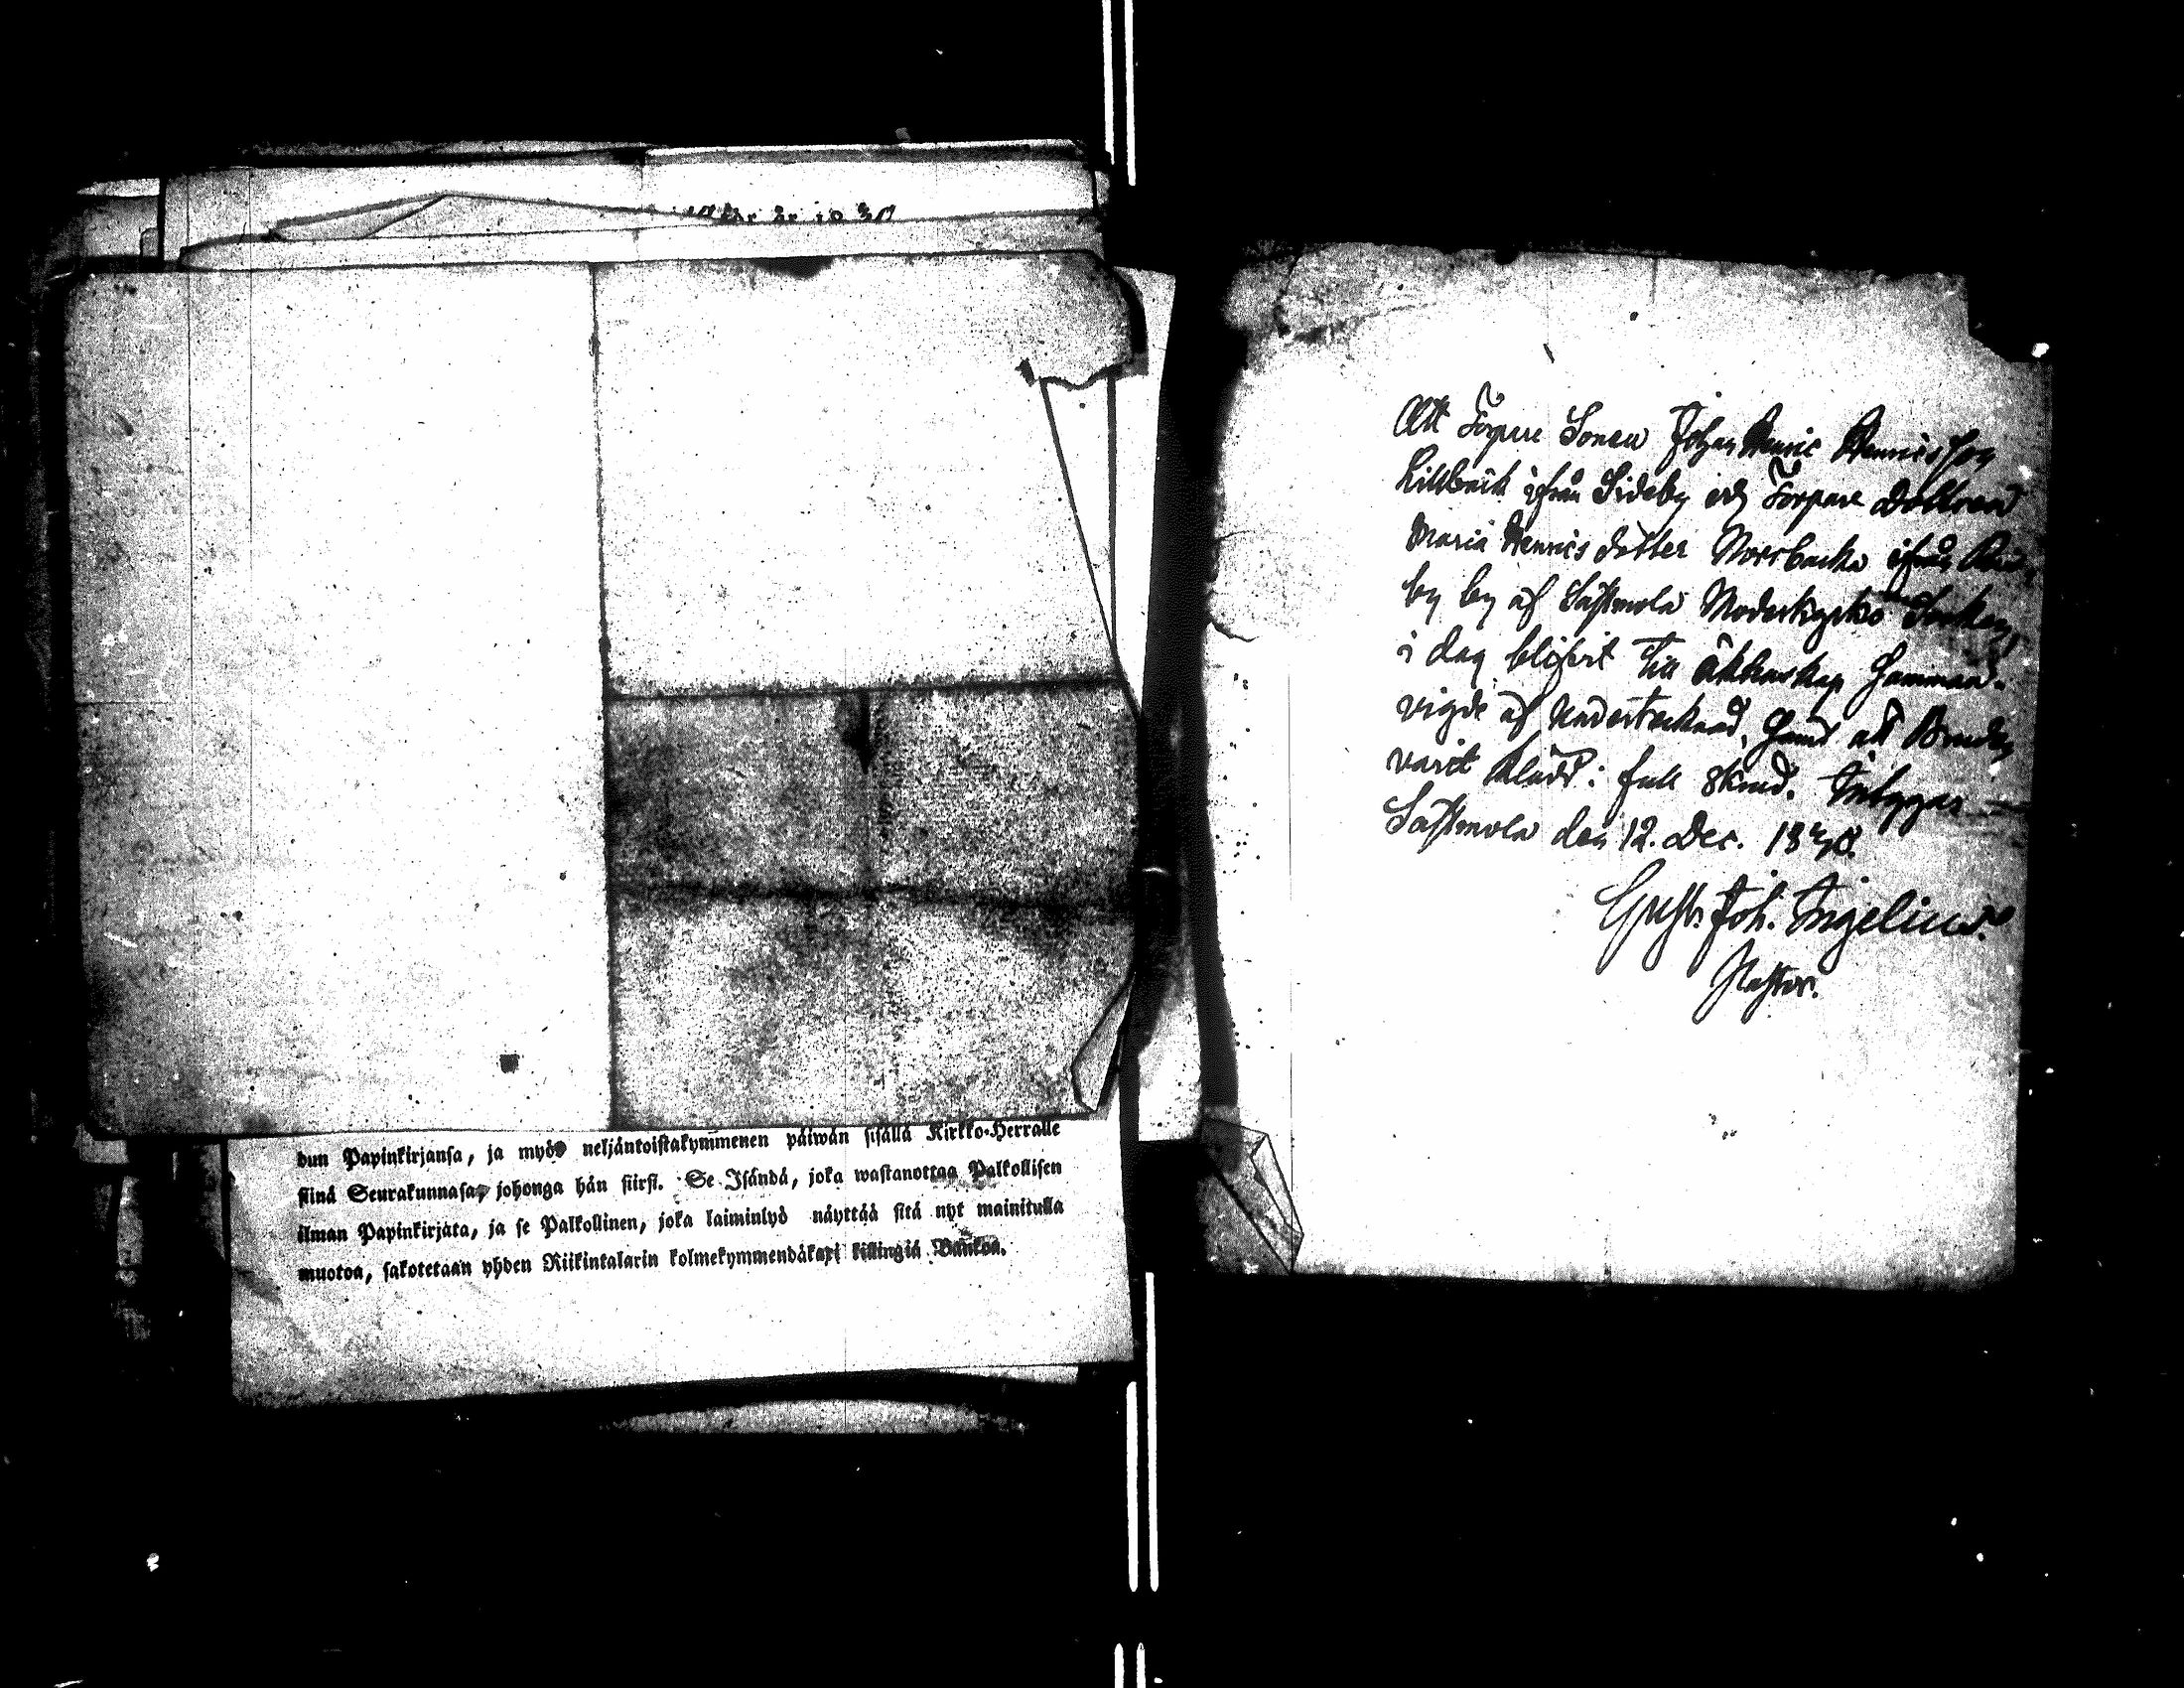 dun Papinkirjansa, ja myös neljäntoistakymmenen päiwän sisällä Kirkko-Herralle
siinä Seurakunnasa, johonga hän siirsi. Se Isändä, joka wastanottaa Palkollisen
ilman Papinkirjata, ja se Palkollinen, joka laiminlyö näyttää sitä nyt mainitulla
muotoa, sakotetaan yhden Riikintalarin kolmekymmendäkaxi killingiä Bankoa.
Att Torpare Sonen Johan Henric Henricsson
Lillbäck ifrån Sideby och Torpare Dottren
Maria Henricsdotter Norrbacka ifrån
by by af Sastmola Moderkyrko Socken,
i dag blifvit till äktenskap Samman-
vigde af Undertecknad, samt att Bruden
varit klädd i full skrud. Intygar
Sastmola den 12. Dec. 1830.
Gust. Joh. Ingelius.
Pastor.